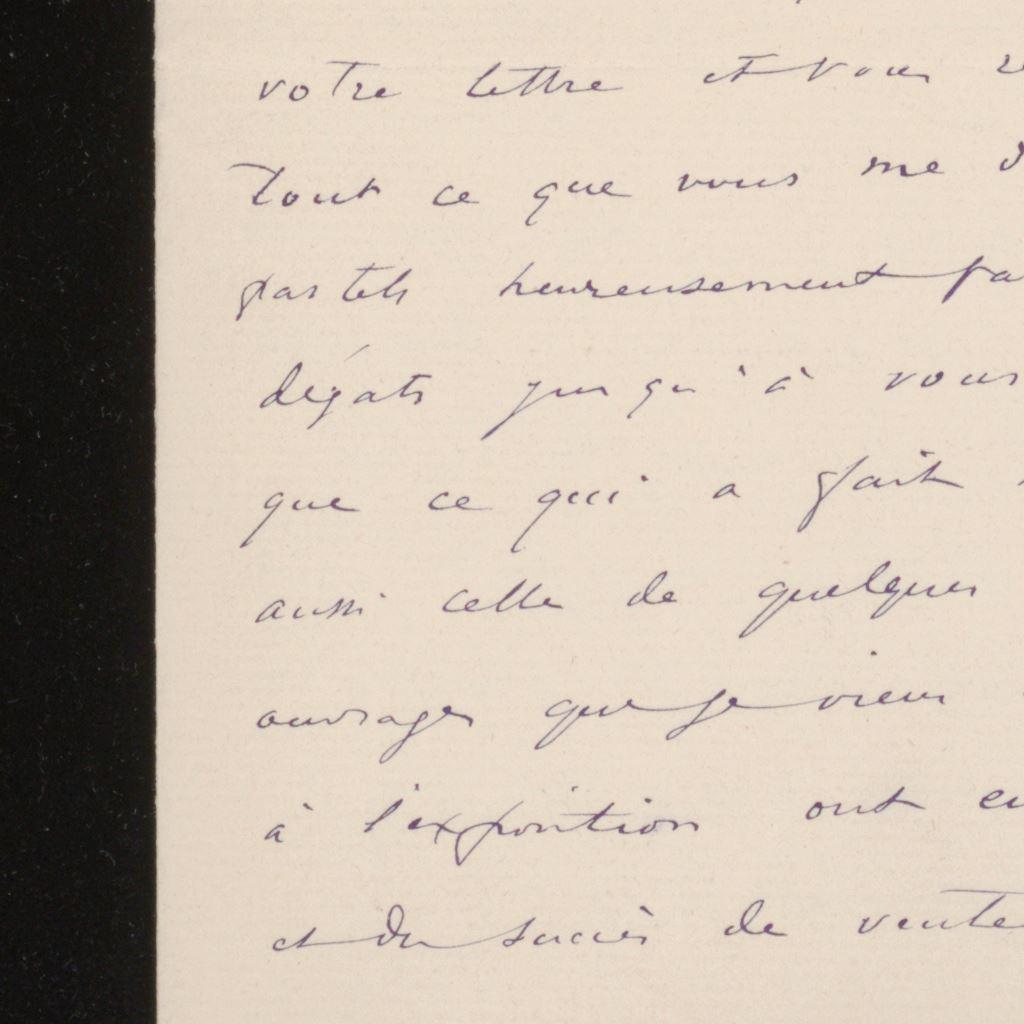 votre lettre et vous
tout ce que vous me
pastels heureusement
dégats jusqu'à vous
que ce qui a fait
aussi celle de quelques
ouvrages que je viens
à l'exposition ont
et du succès de vente